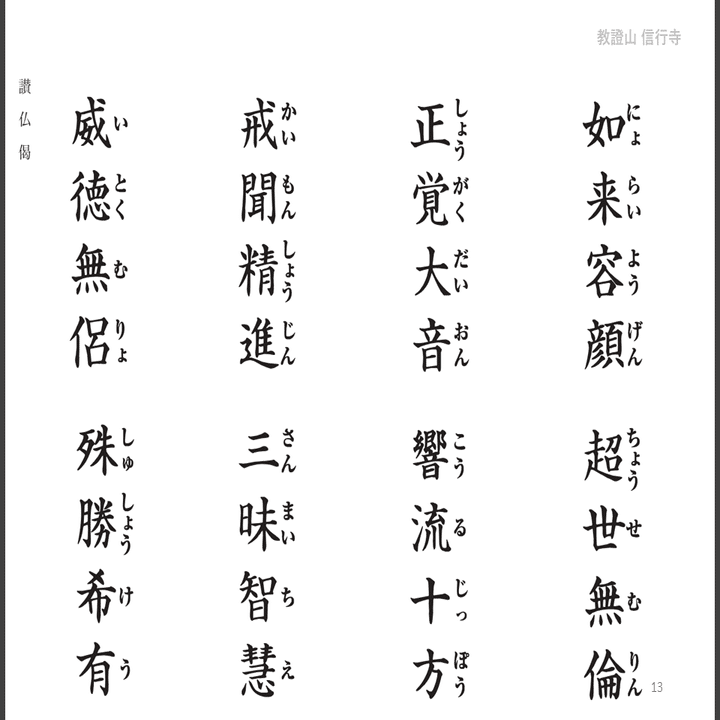 教證山 信行寺
如来容顔 超世無倫
にょらいようげん ちょうせむりん
正覚大音 響流十方
しょうがくだいおん こうるじっぽう
戒聞精進 三昧智慧
かいもんしょうじん さんまいちえ
威徳無侶 殊勝希有
いとくむりょ しゅしょうけう
讃仏偈
13